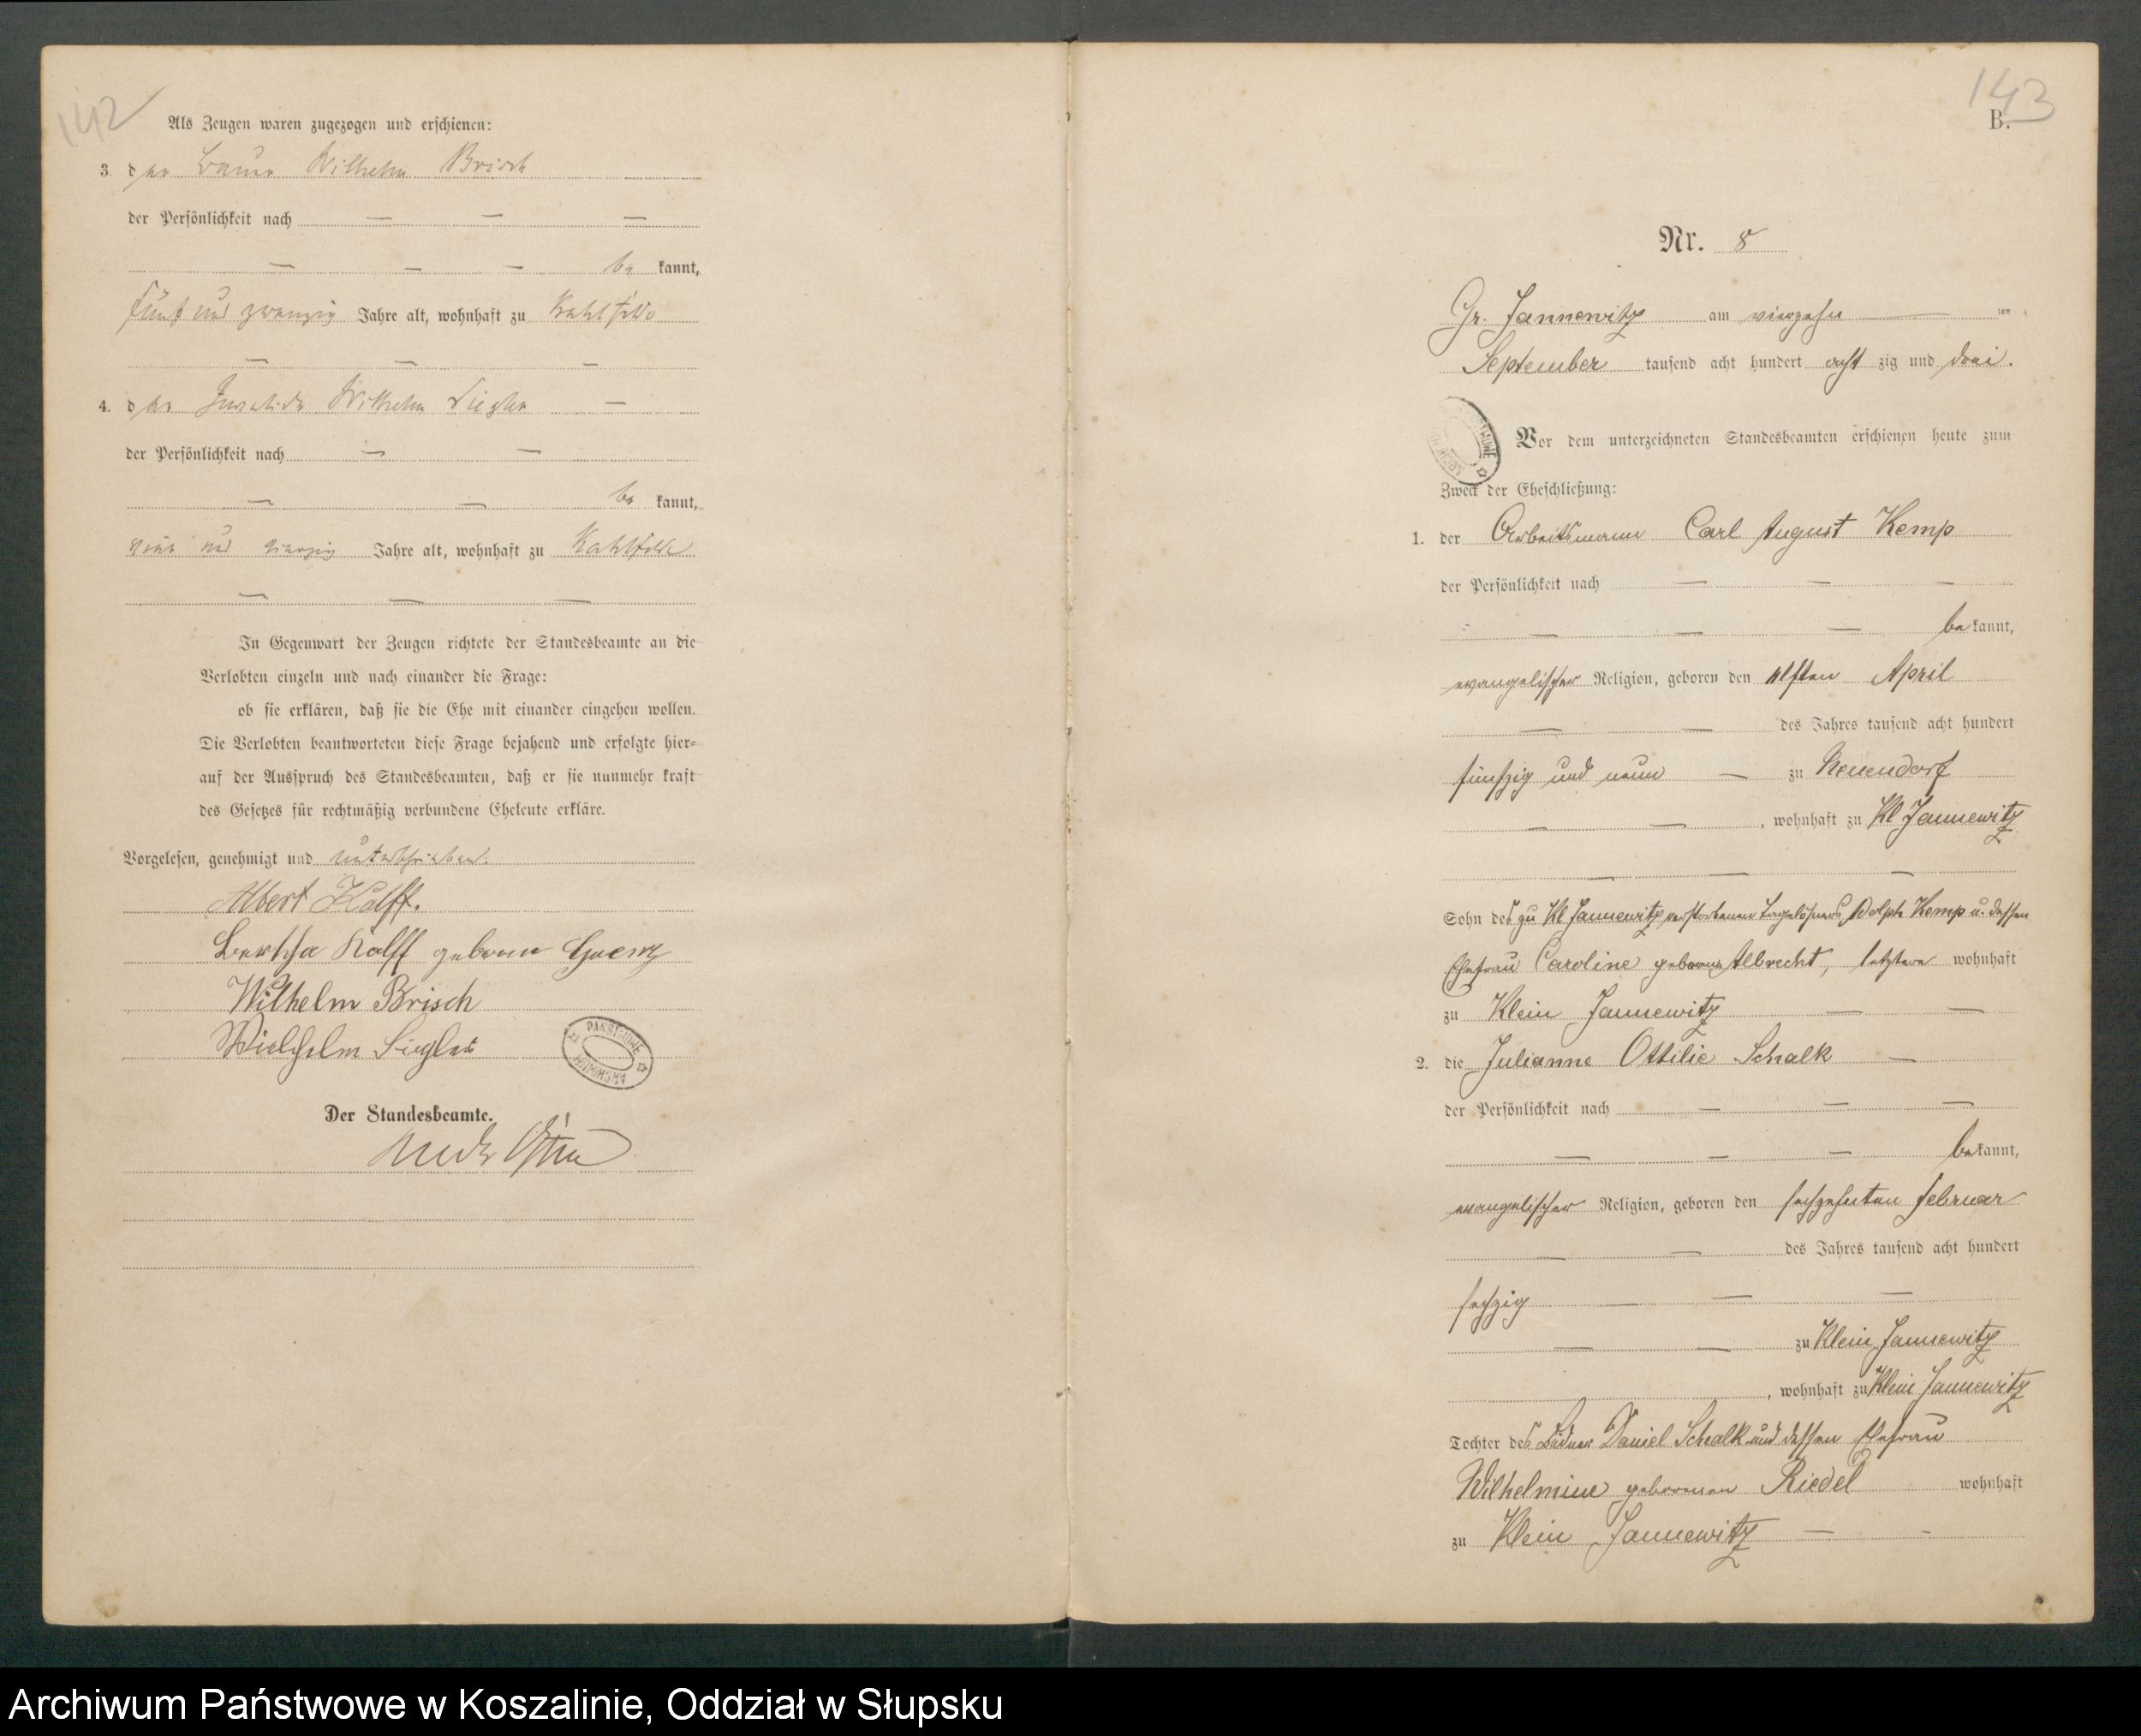 142
Als Zeugen waren zugezogen und erschienen:
3. der Bauer Wilhelm Brisch
der Persönlichkeit nach — — —
— — — be kannt,
fünf und zwanzig Jahre alt, wohnhaft zu
— — —
4. der Invalide Wilhelm —
der Persönlichkeit nach — —
— — be kannt,
und Jahre alt, wohnhaft zu
— — —
In Gegenwart der Zeugen richtete der Standesbeamte an die
Verlobten einzeln und nach einander die Frage:
ob sie erklären, daß sie die Ehe mit einander eingehen wollen.
Die Verlobten beantworteten diese Frage bejahend und erfolgte hier-
auf der Ausspruch des Standesbeamten, daß er sie nunmehr kraft
des Gesetzes für rechtmäßig verbundene Eheleute erkläre.
Vorgelesen, genehmigt und unterschrieben.
Albert Kolff.
Bertha Kolff geborne
Wilhelm Brisch
Wielhelm Siegler
PAŃSTWOWE
Der Standesbeamte.
143
B.
Nr. 8
Gr. Jannewitz am vierzehn — ten
September tausend acht hundert acht zig und drei.
Vor dem unterzeichneten Standesbeamten erschienen heute zum
Zweck der Eheschließung:
1. der Arbeitsmann Carl August Kemp
der Persönlichkeit nach — — —
— — — be kannt,
evangelischer Religion, geboren den elften April
— — des Jahres tausend acht hundert
fünfzig und neun — zu Neuendorf
— — , wohnhaft zu Kl Jannewitz
— — —
Sohn des zu Kl Jannewitz verstorbenen Tagelöhners Adolph Kemp u. dessen
Ehefrau Caroline geborene Albrecht, letztere wohnhaft
zu Klein Jannewitz — —
2. die Julianne Ottilie Schalk —
der Persönlichkeit nach — — —
— — — be kannt,
evangelischer Religion, geboren den sechzehnten Februar
— — des Jahres tausend acht hundert
sechzig — — —
— — zu Klein Jannewitz
, wohnhaft zu Klein Jannewitz
Tochter des Büdner Daniel Schalk und dessen Ehefrau
Wilhelmine geborenen Riedel wohnhaft
zu Klein Jannewitz — -
Archiwum Państwowe w Koszalinie, Oddział w Słupsku